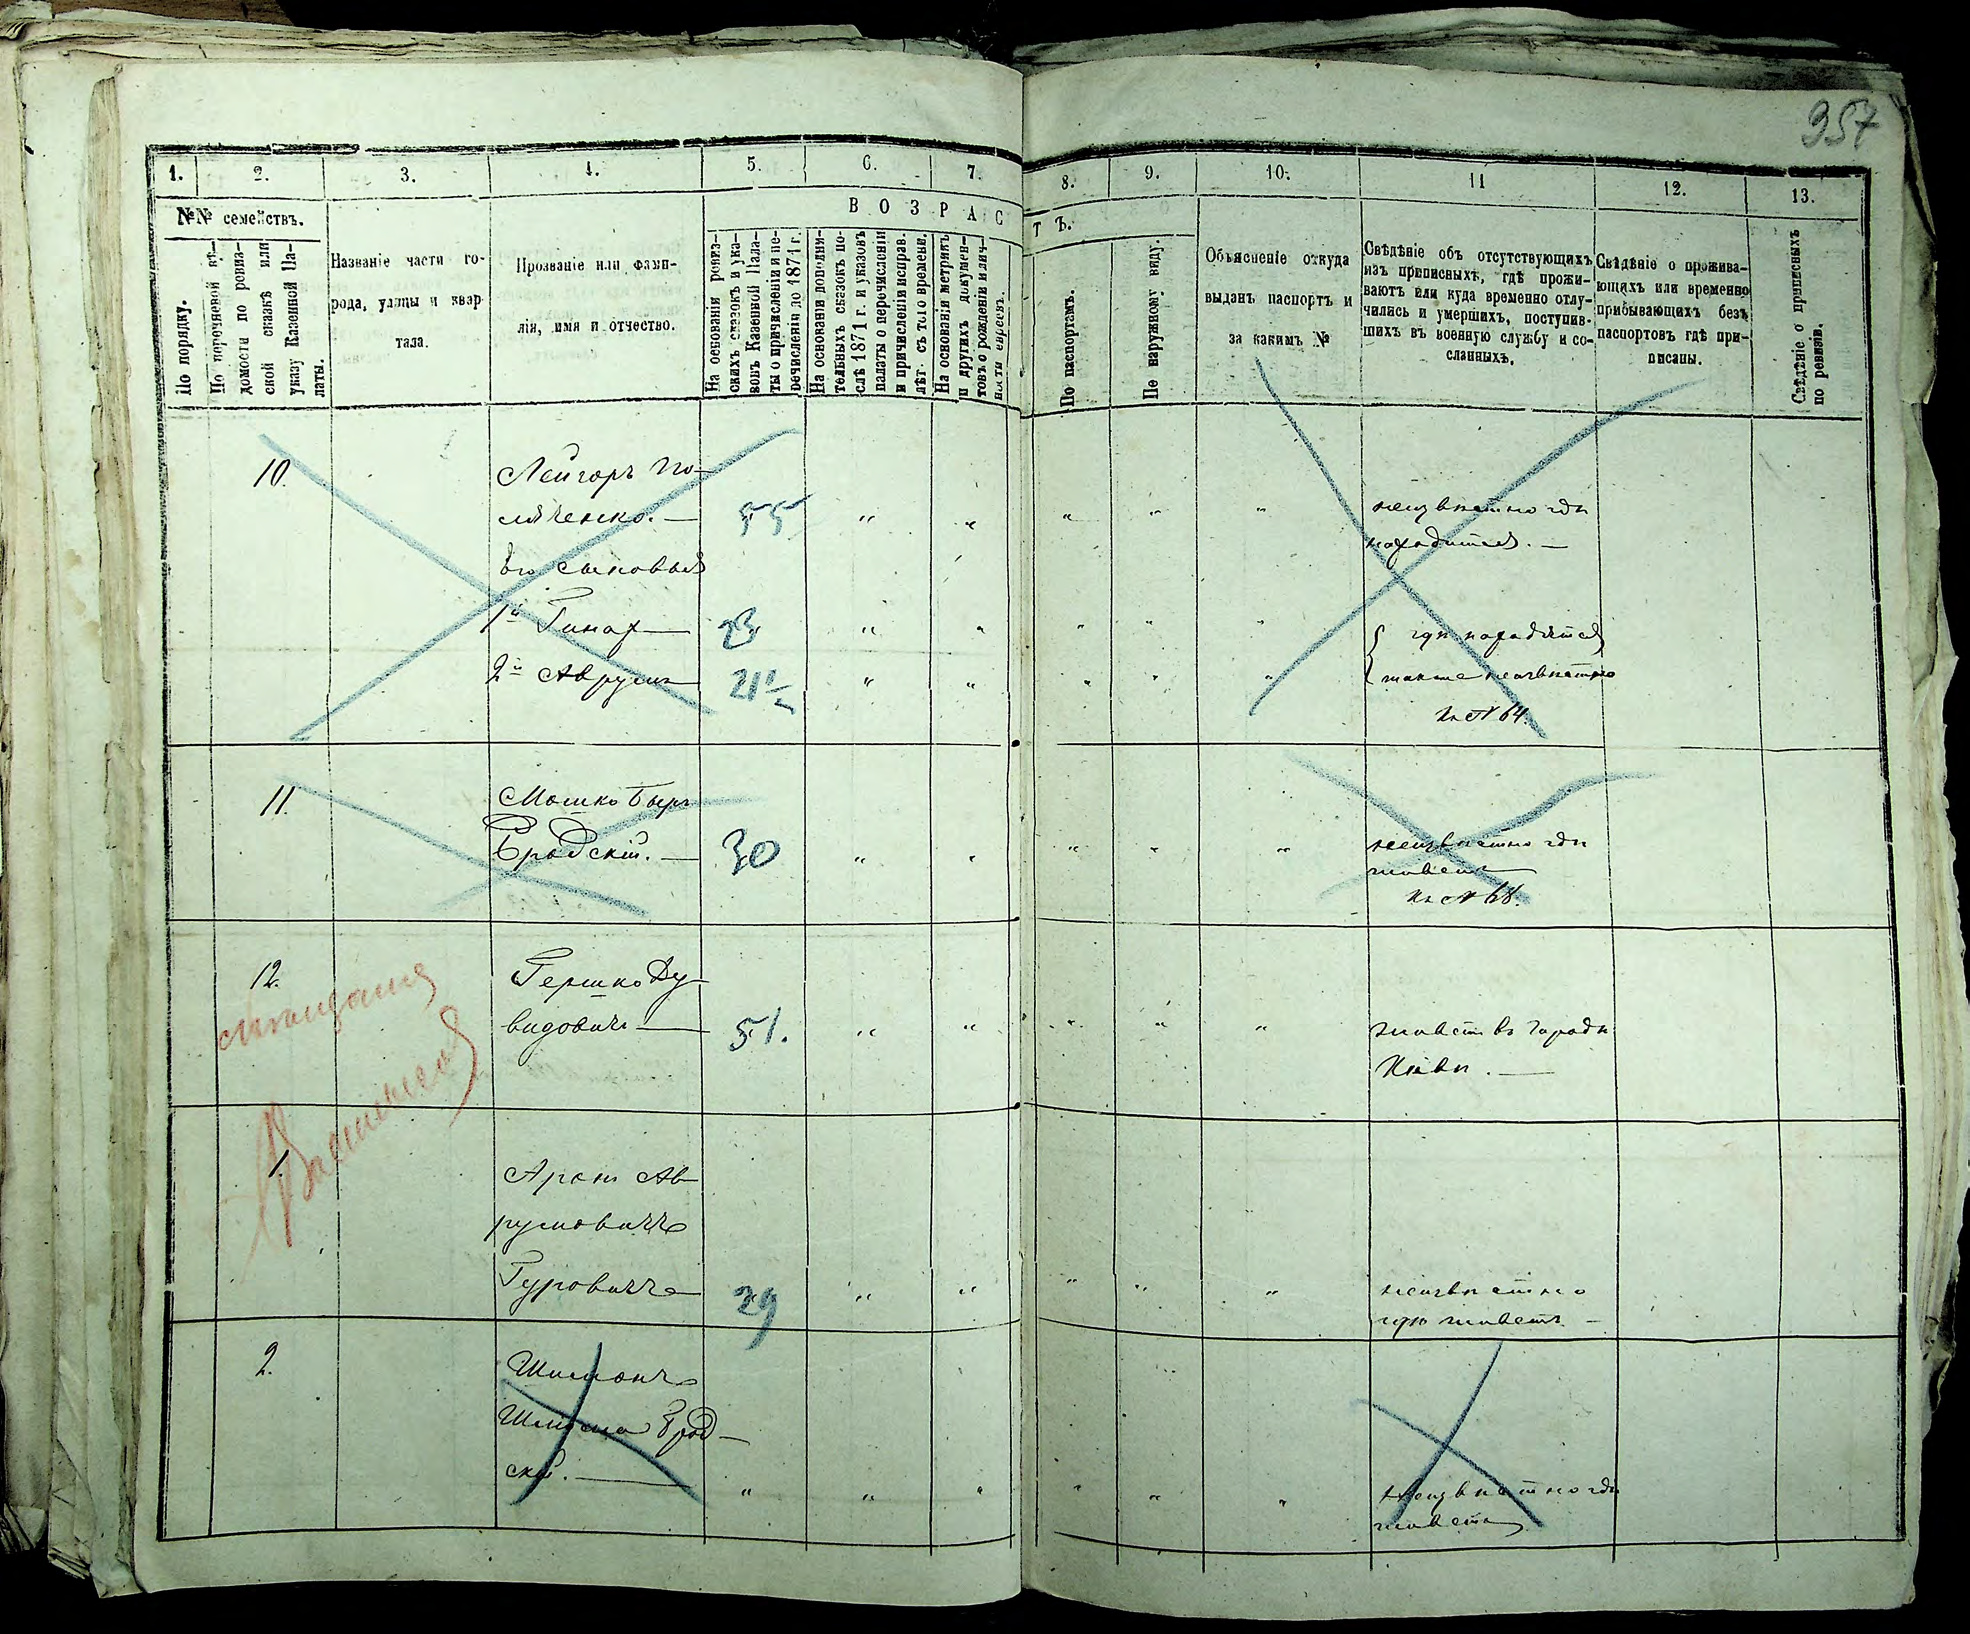 357
1.
2.
3.
4.
5.
6.
7.
8.
9.
10.
11
12.
13.
№№ семействъ.
В О З Р А С
Т Ъ.
По порядку.
По перечневой вѣ-
домости по ревиз-
ской сказкѣ или
указу Казенной Па-
латы.
Названіе части го-
рода, улицы и квар-
тала.
Прозваніе или фами-
лія, имя и отчество.
На основаніи ревиз-
скихъ сказокъ и ука-
зовъ Казенной Пала-
ты о причисленіи и пе-
речисленіи до 1871 г.
На основаніи дополни-
тельныхъ сказокъ по-
слѣ 1871 г. и указовъ
палаты о перечисленіи
и причисленіи исправ.
лѣт. съ того времени.
На основаніи метрикъ
и другихъ докумен-
товъ о рожденіи и лич-
ности евреевъ.
По паспортамъ.
По наружному виду.
Объясненіе откуда
выданъ паспортъ и
за какимъ №
Свѣдѣніе объ отсутствующихъ
изъ приписныхъ, гдѣ прожи-
ваютъ или куда временно отлу-
чились и умершихъ, поступив-
шихъ въ военную службу и со-
сланныхъ.
Свѣдѣніе о прожива-
ющихъ или временно
прибывающихъ безъ
паспортовъ гдѣ при-
писаны.
Свѣдѣніе о приписныхъ
по ревизіи.
10.
55
неизвѣстно гдѣ
находится. —
Его сыновья
1й
23
гдѣ находятся
2й Аврумъ
21 1/2
также неизвѣстно
№ 64.
11.
Мошко Беръ
Бродскій. —
30
неизвѣстно гдѣ
живетъ
№ 68.
12.
Гершко Ду-
видовичъ —
51.
живетъ въ городѣ
Кіевѣ. —
мѣщане
1.
Аронъ Ав-
румовичъ
Гуровичъ
29
неизвѣстно
гдѣ живетъ —
2.
Шимонъ
Шлиома Брод-
скій. —
неизвѣстно гдѣ
живетъ